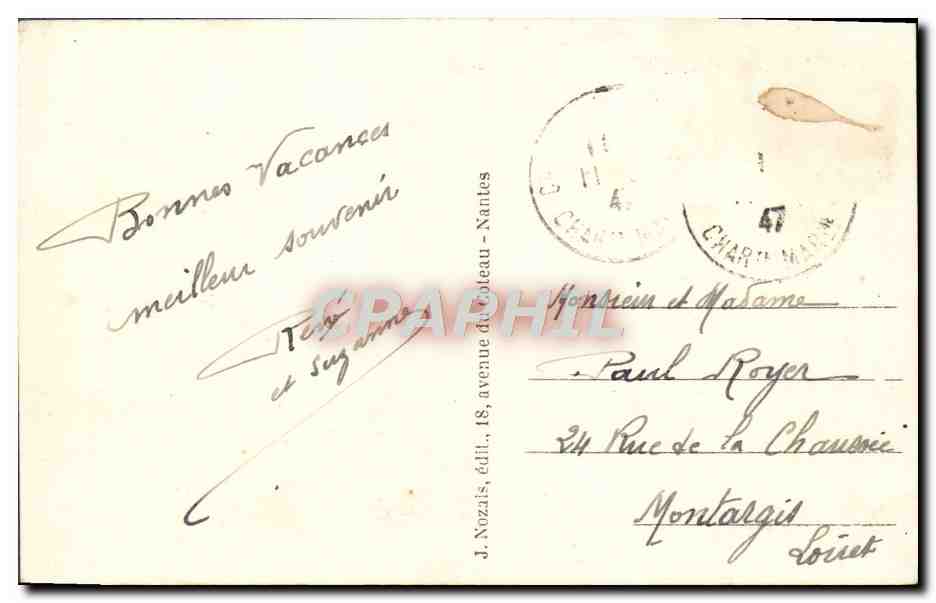 Bonnes Vacances
meilleur souvenir
René
et Suzanne
J. Nozais, édit., 18, avenue du Coteau - Nantes
11
47
CHARTE MARME
1
47
CHARTE MARME
Monsieur et Madame
Paul Royer
24 Rue de la Chaussée
Montargis
Loiret
CPAPHIL